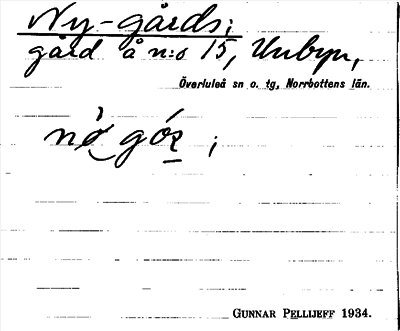 Ny-gårds;
gård å n:o 15, Unbyn,
Överluleå sn o. tg, Norrbottens län.
nø̀ gór ;
GUNNAR PELLIJEFF 1934.